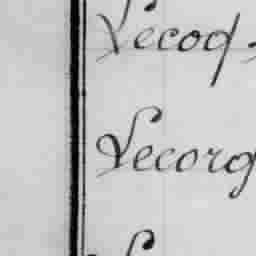 Lecoq
Lecorg